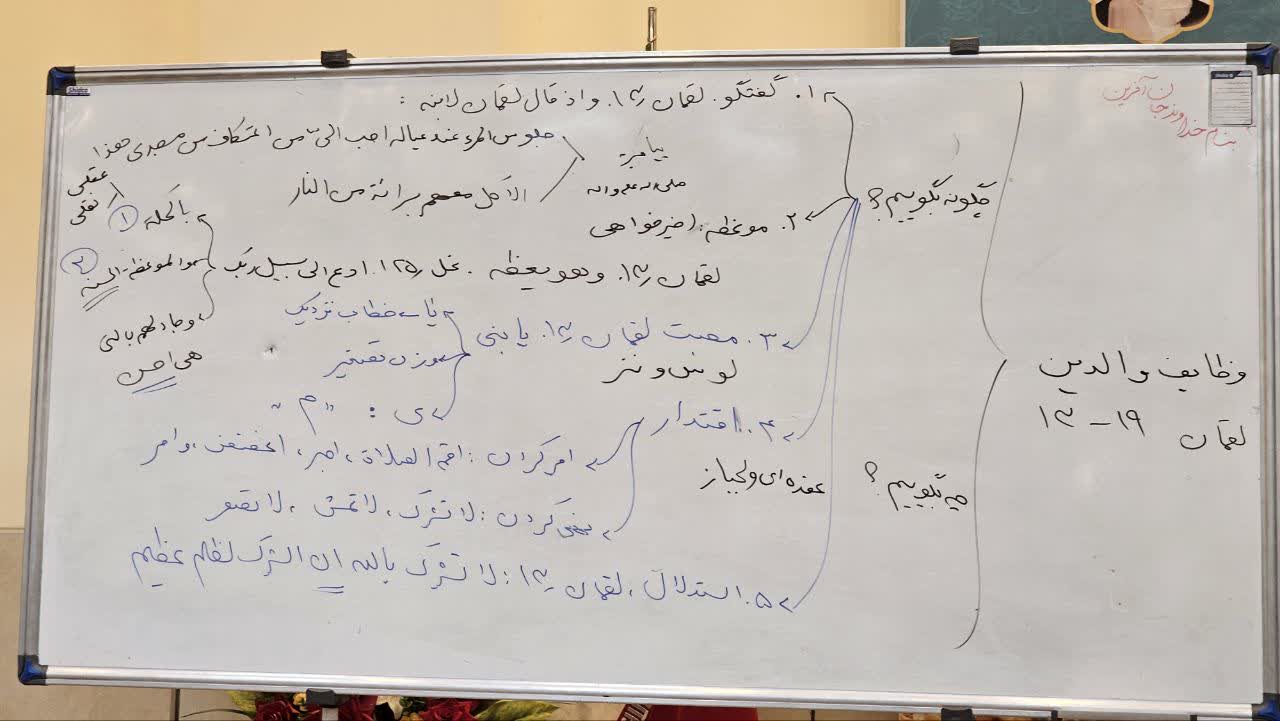 بنام خداوند جان آفرین
وظایف والدین
لقمان ۱۹ - ۱۳
چگونه بگوییم؟
۱. گفتگو. لقمان ۱۳. و اذ قال لقمان لابنه :
پیامبر
صلی الله علیه و اله
جلوس المرء عند عیاله احب الی الله من اعتکاف من مسجدی هذا
الاکل معهم برائة من النار
۲. موعظه: خیرخواهی
لقمان ۱۳. و هو یعظه . نحل ۱۲۵. ادع الی سبیل ربک
بالحکمه ۱
عقلی
نقلی
والموعظة الحسنه ۲
و جادلهم بالتی
هی احسن
۳. محبت لقمان ۱۳. یا بنی
لوس و ننر
یا: خطاب نزدیک
بر وزن تصغیر
ی : "م"
۴. اقتدار
عقده ای و لجباز
امر کردن : اقم الصلاة، اصبر، اغضض، وامر
نهی کردن : لا تشرک، لا تمش ، لا تصعر
۵. استدلال، لقمان ۱۳: لا تشرک بالله ان الشرک لظلم عظیم
چه بگوییم؟